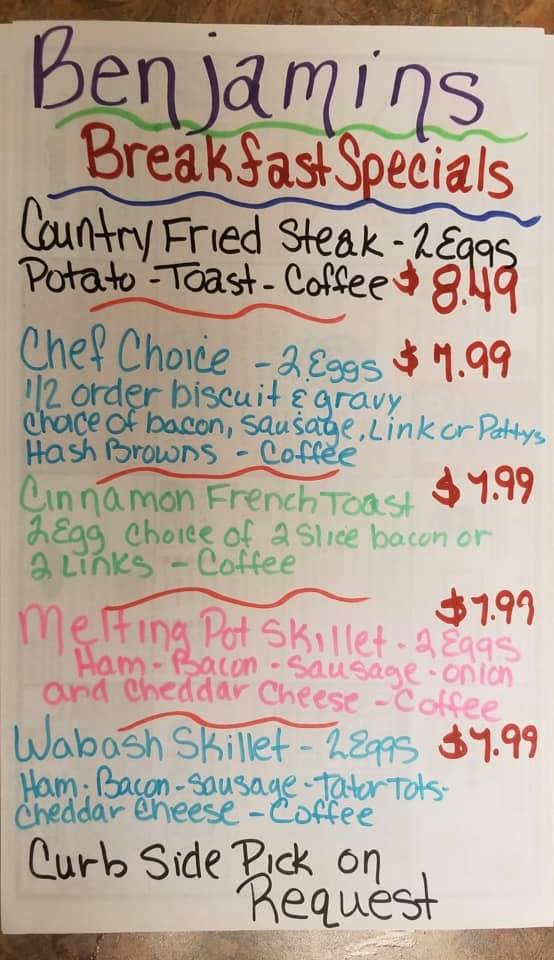 Benjamins
Breakfast Specials
Country Fried Steak - 2 Eggs
Potato - Toast - Coffee $ 8.49
Chef Choice - 2 Eggs $ 7.99
1/2 order biscuit & gravy
choice of bacon, sausage, Link or Pattys
Hash Browns - Coffee
Cinnamon French Toast $ 7.99
2 Egg choice of 2 Slice bacon or
2 Links - Coffee
$7.99
Melting Pot Skillet - 2 Eggs
Ham - Bacon - Sausage - onion
and Cheddar Cheese - Coffee
Wabash Skillet - 2 Eggs $7.99
Ham - Bacon - Sausage - Tator Tots -
Cheddar Cheese - Coffee
Curb Side Pick on
Request